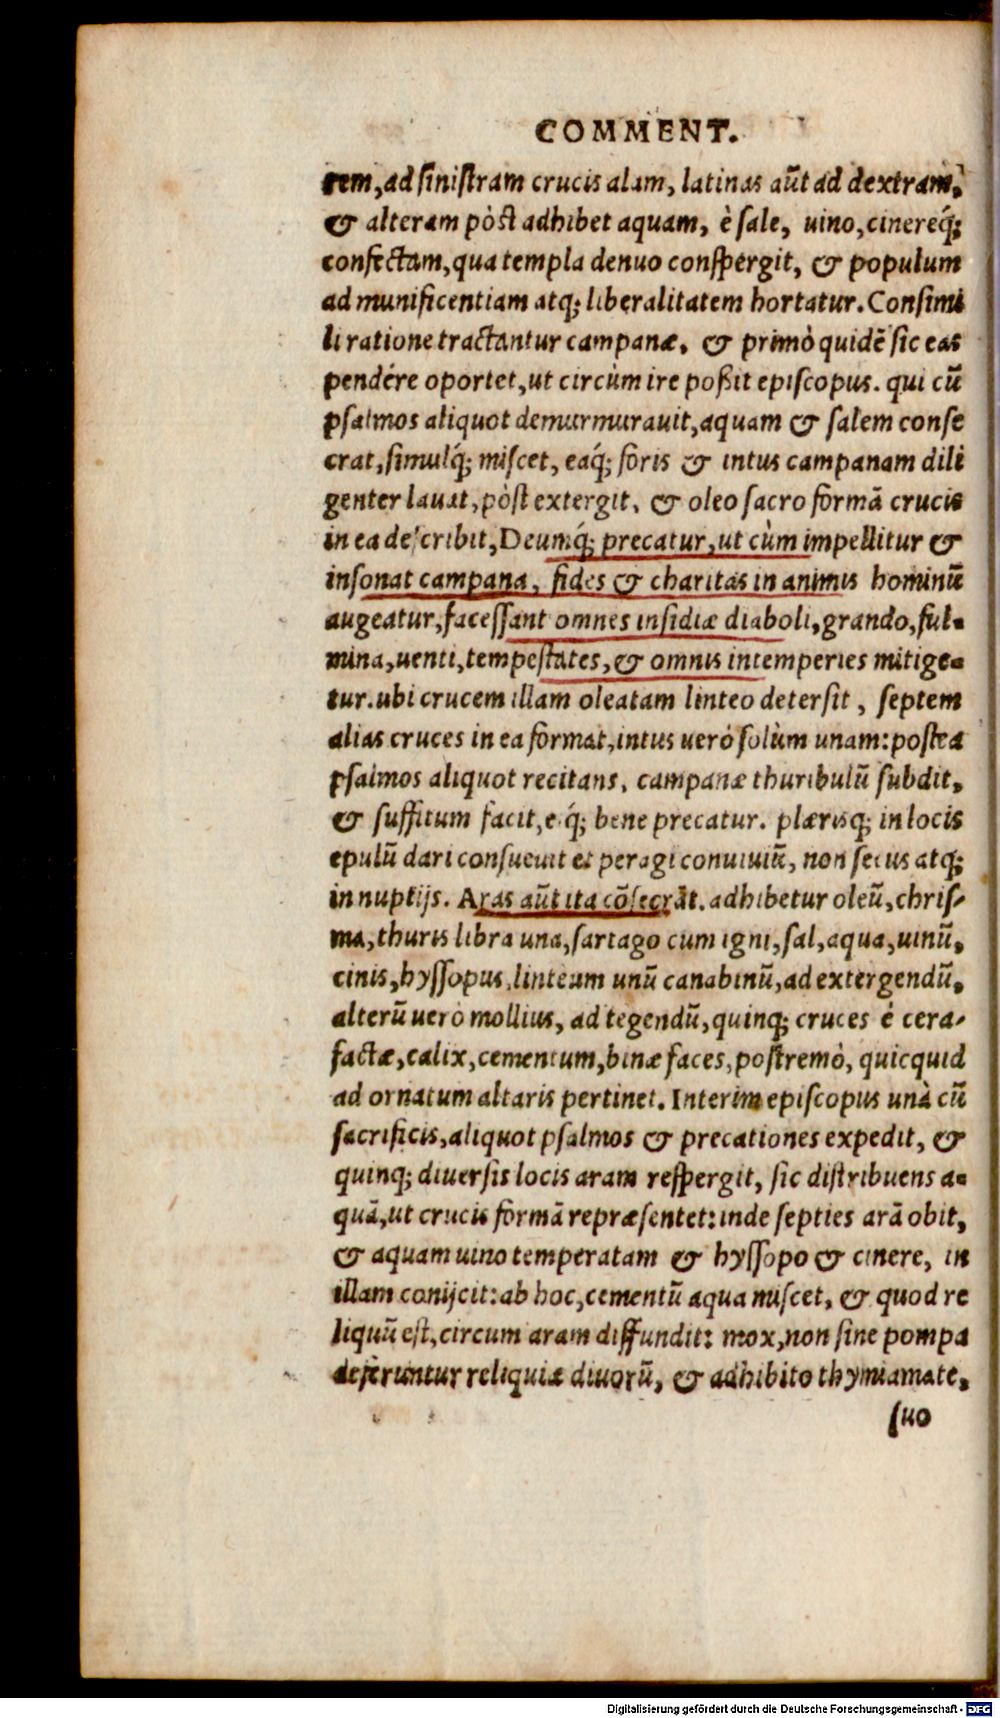 COMMENT.
rem, ad sinistram crucis alam, latinas aūt ad dextram,
& alteram pòst adhibet aquam, è sale, uino, cinereq́;
confectam, qua templa denuo conspergit, & populum
ad munificentiam atq; liberalitatem hortatur. Consimi
li ratione tractantur campanæ, & primò quidẽ sic eas
pendére oportet, ut circùm ire poßit episcopus. qui cū
psalmos aliquot demurmurauit, aquam & salem conse
crat, simulq́; miscet, eaq́; foris & intus campanam dili
genter lauat, pòst extergit, & oleo sacro formã crucis
in ea describit, Deumq́; precatur, ut cùm impellitur &
insonat campana, fides & charitas in animis hominū
augeatur, facessant omnes insidiæ diaboli, grando, ful-
mina, uenti, tempestates, & omnis intemperies mitige-
tur. ubi crucem illam oleatam linteo detersit, septem
alias cruces in ea format, intus uerò solùm unam: postea
psalmos aliquot recitans, campanæ thuribulū subdit,
& suffitum facit, eiq́; bene precatur. plærisq; in locis
epulū dari consueuit et peragi conuiuiū, non secus atq;
in nuptijs. Aras aūt ita cõsecrãt. adhibetur oleū, chris-
ma, thuris libra una, sartago cum igni, sal, aqua, uinū,
cinis, hyssopus, linteum unū canabinū, ad extergendū,
alterū uerò mollius, ad tegendū, quinq; cruces è cera
factæ, calix, cementum, binæ faces, postremò, quicquid
ad ornatum altaris pertinet. Interim episcopus unà cū
sacrificis, aliquot psalmos & precationes expedit, &
quinq; diuersis locis aram respergit, sic distribuens a-
quã, ut crucis formã repræsentet: inde septies arã obit,
& aquam uino temperatam & hyssopo & cinere, in
illam conijcit: ab hoc, cementū aqua miscet, & quod re
liquū est, circum aram diffundit: mox, non sine pompa
deferuntur reliquiæ diuorū, & adhibito thymiamate,
suo
Digitalisierung gefördert durch die Deutsche Forschungsgemeinschaft - DFG